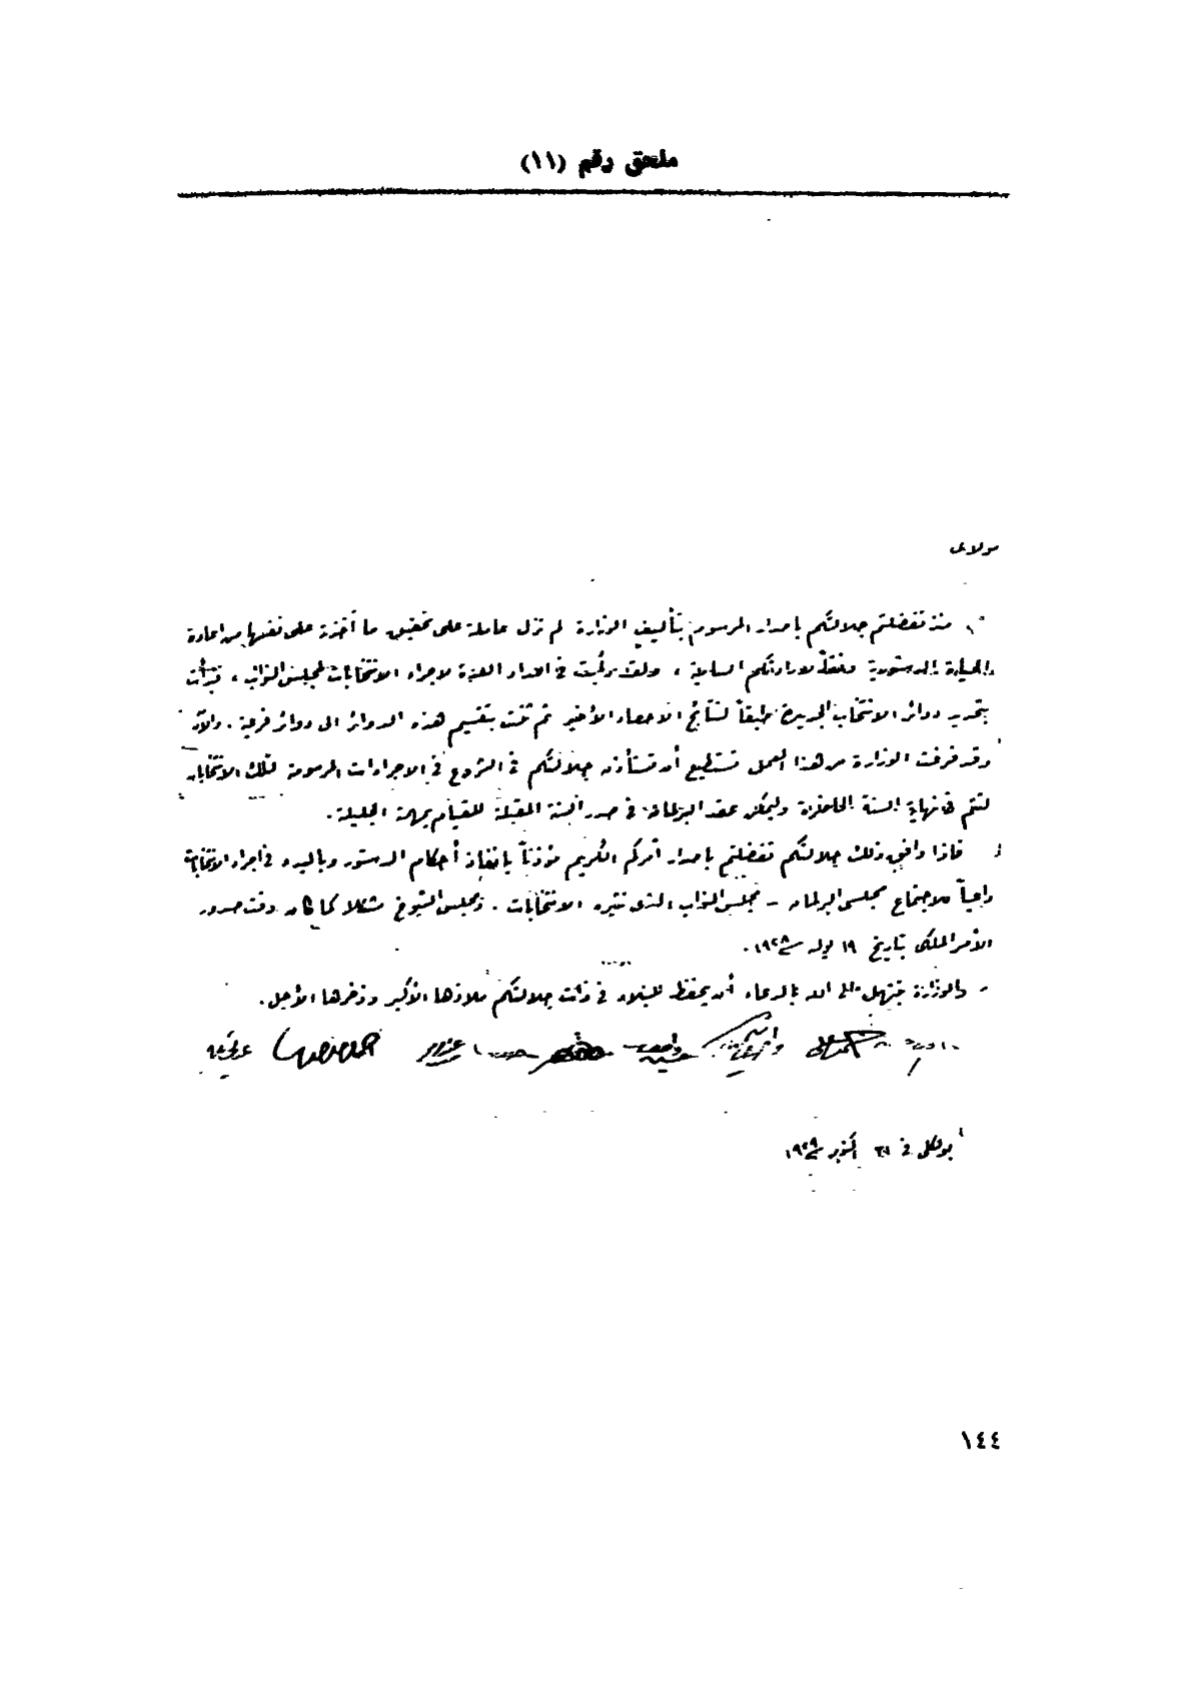 ملحق رقم (١١)
مولاى
منذ تفضلتم جلالتكم باصدار المرسوم بتأليف الوزارة لم تزل عاملة على تحقيق ما أخذته على نفسها من اعادة
الحياة الدستورية وفقاً لارادتكم السامية ، ولقد رغبت فى اعداد العدة لاجراء الانتخابات لمجلس النواب ، فبدأت
بتحديد دوائر الانتخاب الجديدة طبقاً لنتائج الاحصاء الأخير ثم ثنت بتقسيم هذه الدوائر الى دوائر فرعية . والآن
وقد فرغت الوزارة من هذا العمل تستطيع أن تستأذن جلالتكم فى الشروع فى الاجراءات المرسومة لتلك الانتخابات
لتتم فى نهاية السنة الحاضرة وليمكن عقد البرلمان فى صدر السنة المقبلة للقيام بمهمته الجليلة .
فاذا وافق ذلك جلالتكم تفضلتم باصدار أمركم الكريم مؤذناً بانفاذ أحكام الدستور وبالبدء فى اجراء الانتخابات
داعياً للاجتماع مجلسى البرلمان - مجلس النواب الذى تنتجه الانتخابات . ومجلس الشيوخ مشكلا كما كان وقت صدور
الأمر الملكى بتاريخ ١٩ يوليه سنة ١٩٢٨ .
والوزارة تبتهل الى الله بالدعاء أن يحفظ للبلاد فى ذات جلالتكم ملاذها الأكبر وذخرها الأجل .
بولكلى فى ٣١ أكتوبر سنة ١٩٢٩
١٤٤